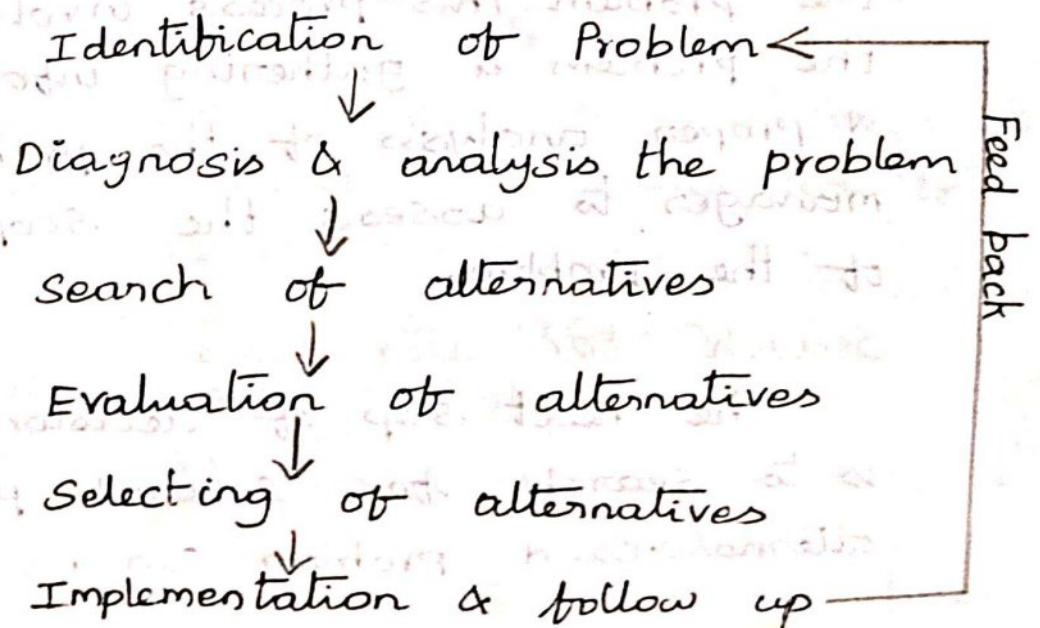 Identification of Problem
Diagnosis & analysis the problem
Search of alternatives
Evaluation of alternatives
Selecting of alternatives
Implementation & follow up
Feed back